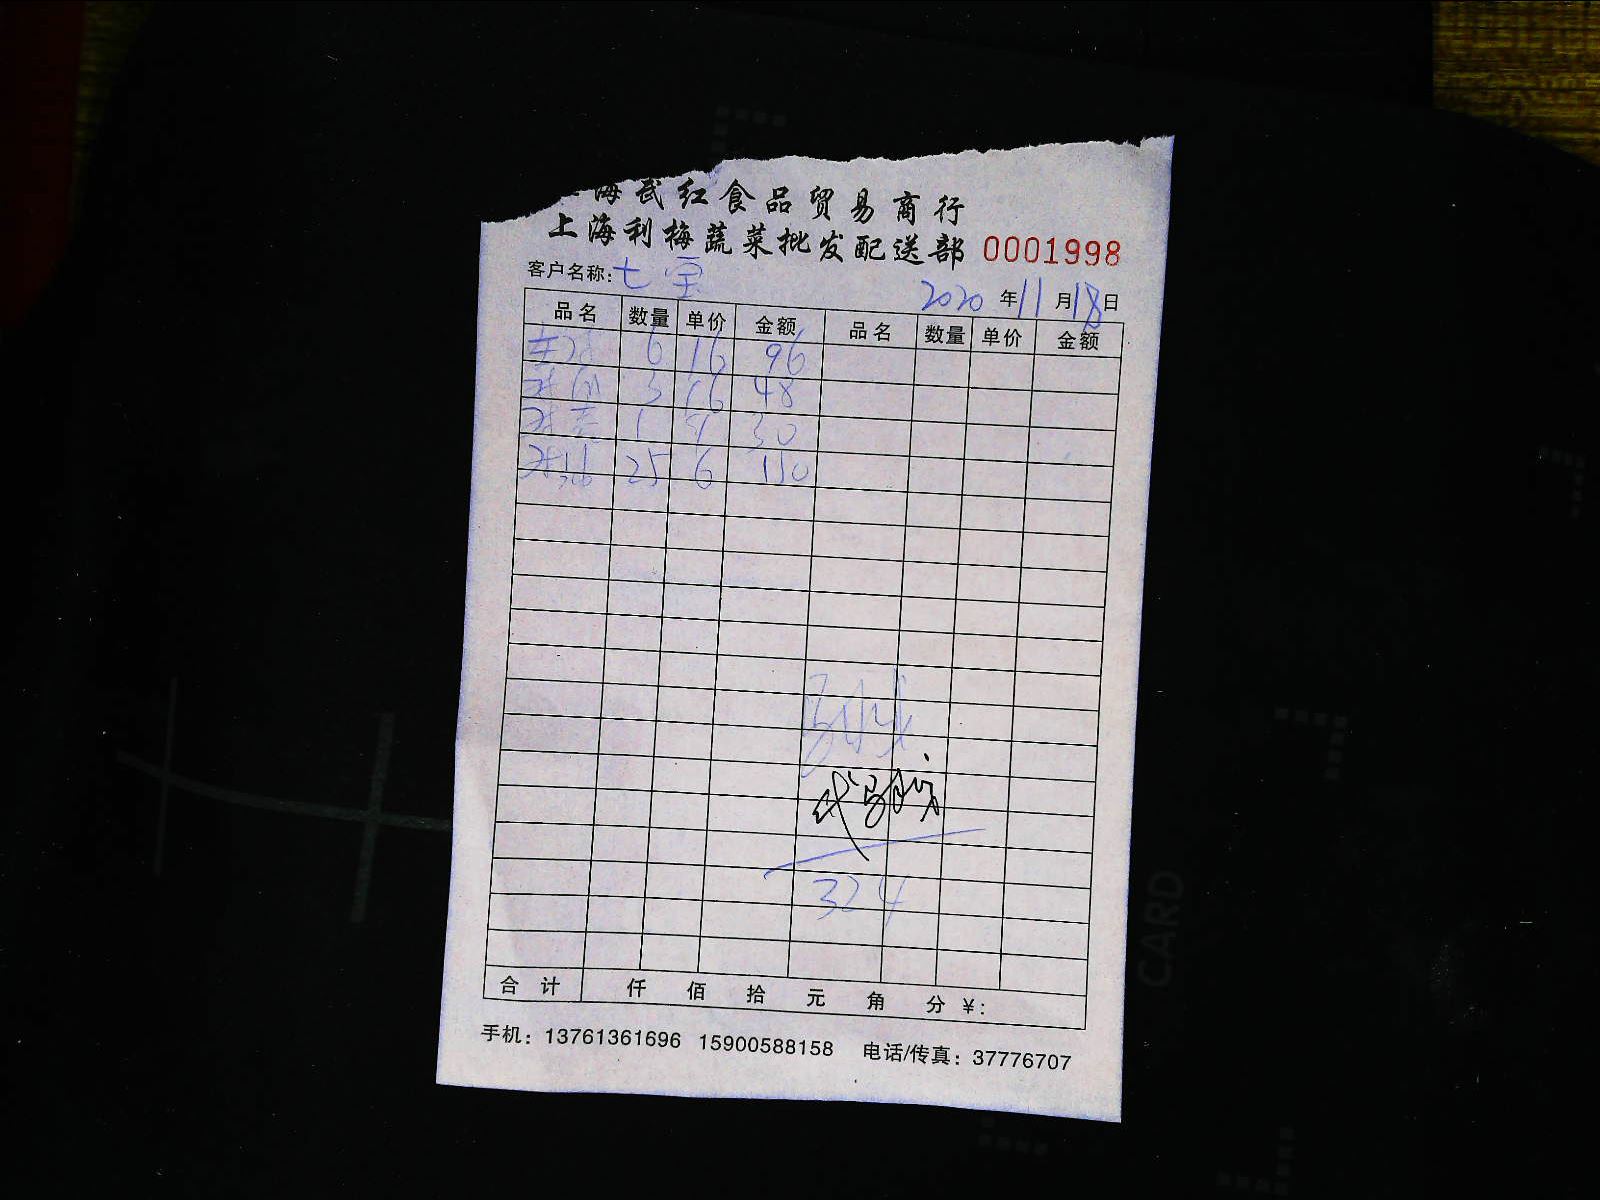 海武红食品贸易商行
上海利梅蔬菜批发配送部 0001998
客户名称: 七宝 2020 年 11 月 18 日
品名 数量 单价 金额 品名 数量 单价 金额
6 16 96
3 16 48
1 30
25 6 150
324
合计 仟 佰 拾 元 角 分 ¥:
手机: 13761361696 15900588158 电话/传真: 37776707
CARD